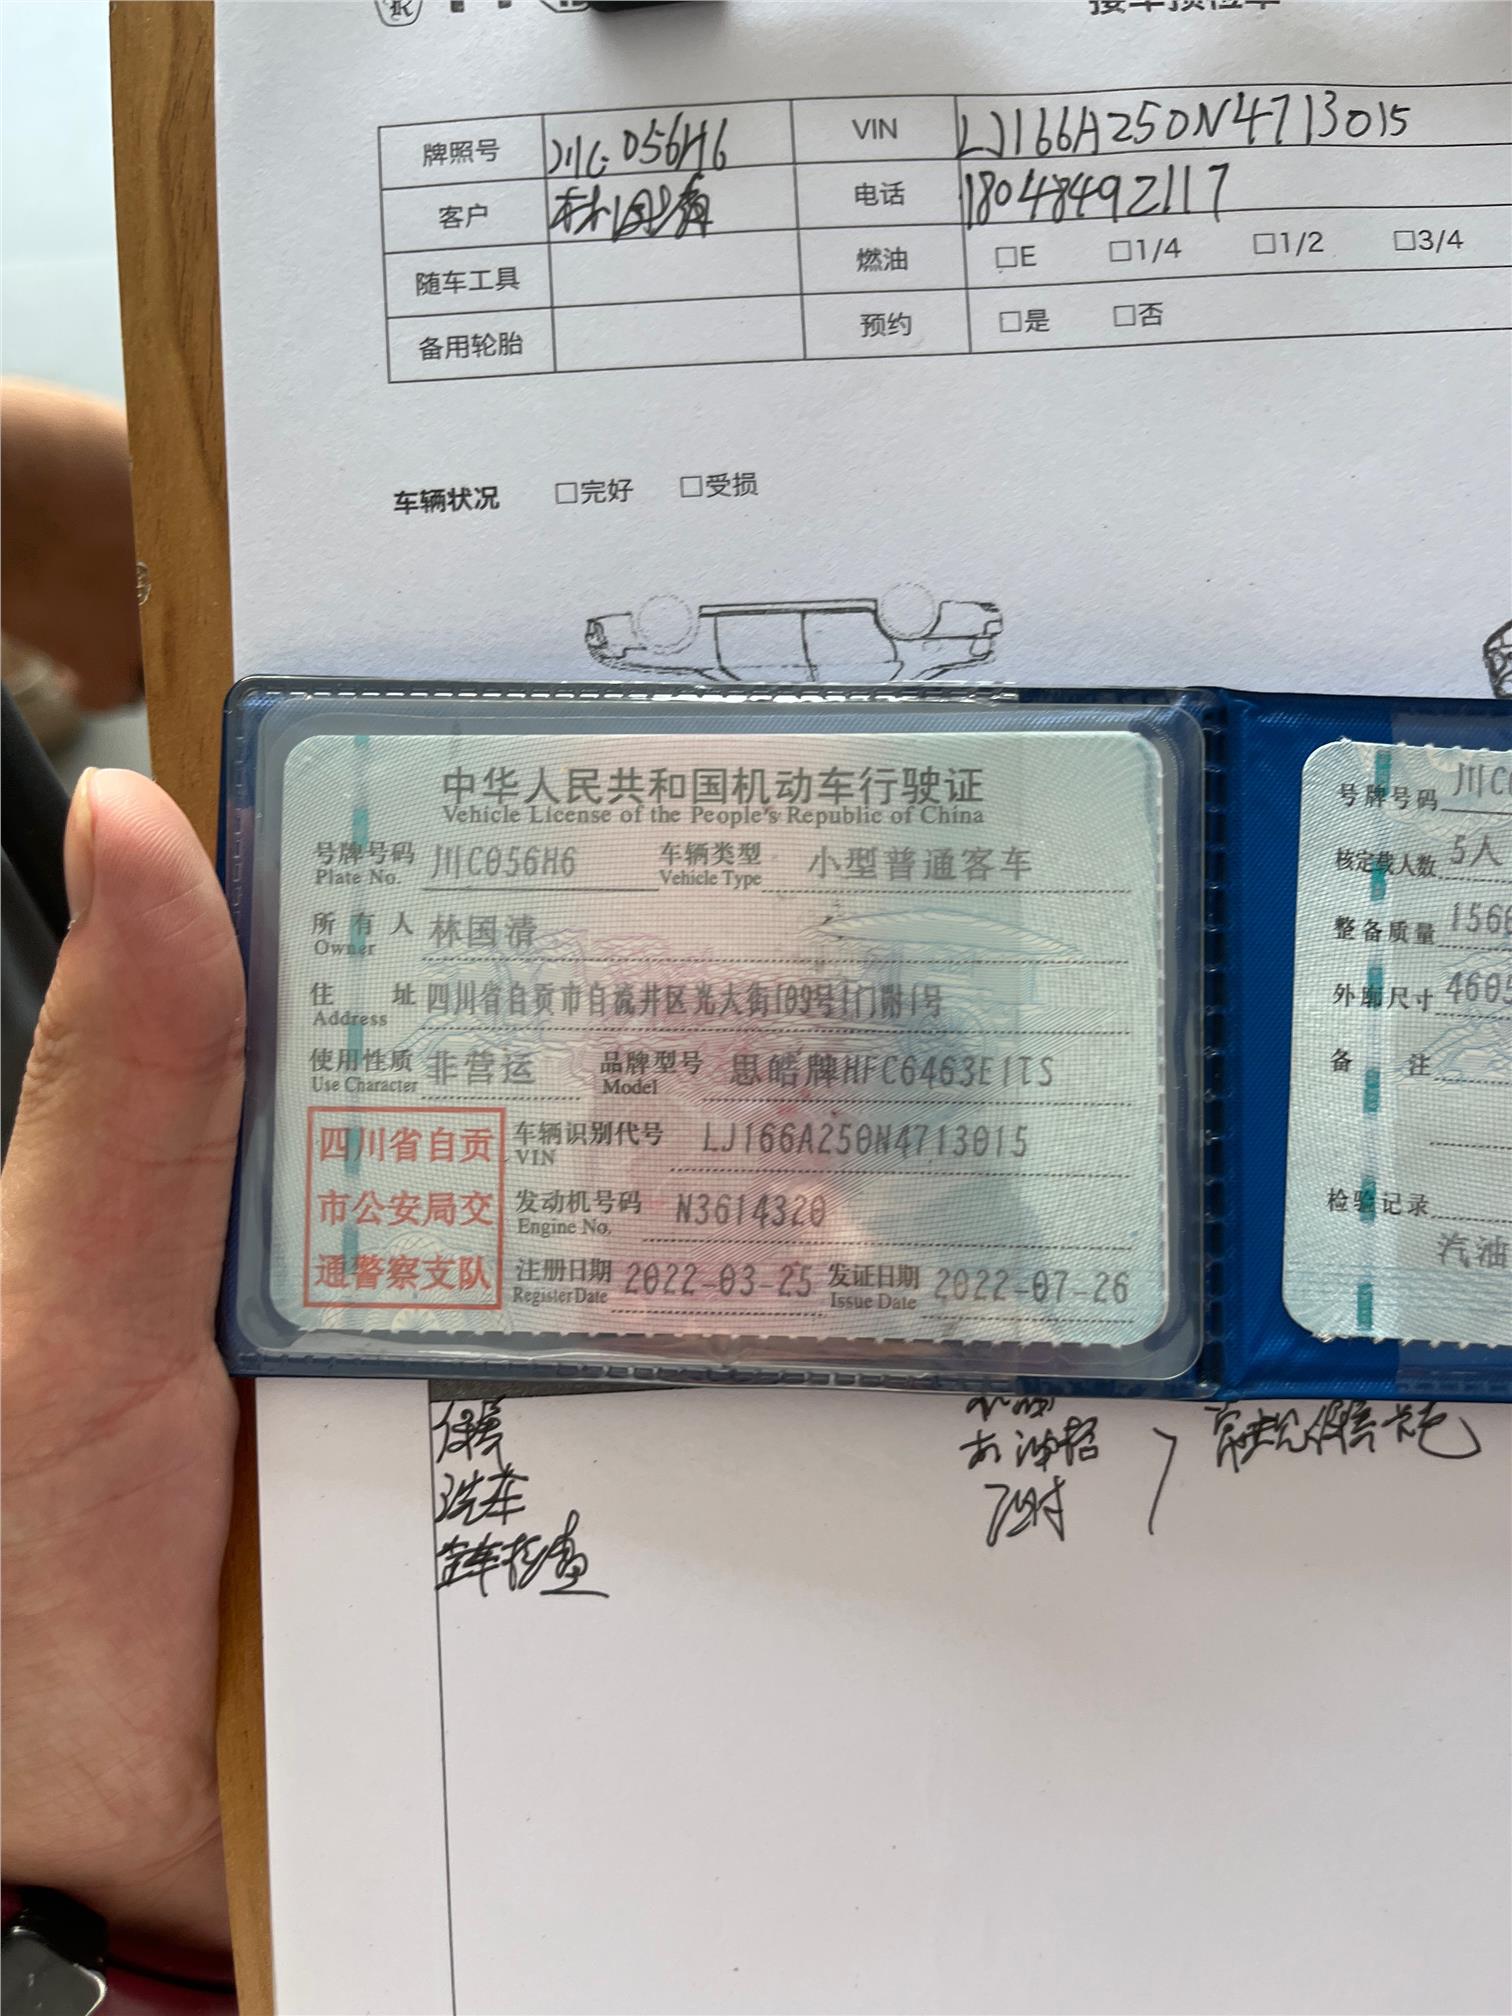 接车预检单
牌照号 川C·056H6 VIN LJ166A250N4713015
客户 林国清 电话 18048492117
随车工具 燃油 □E □1/4 □1/2 □3/4
备用轮胎 预约 □是 □否
车辆状况 □完好 □受损
中华人民共和国机动车行驶证
Vehicle License of the People's Republic of China
号牌号码 川C056H6 车辆类型 小型普通客车
Plate No. Vehicle Type
所有人 林国清
Owner
住址 四川省自贡市自流井区光大街109号1门附1号
Address
使用性质 非营运 品牌型号 思皓牌HFC6463E1TS
Use Character Model
四川省自贡
市公安局交
通警察支队
车辆识别代号 LJ166A250N4713015
VIN
发动机号码 N3614320
Engine No.
注册日期 2022-03-25 发证日期 2022-07-26
Register Date Issue Date
号牌号码 川C
核定载人数 5人
整备质量 156
外廓尺寸 4605
备注
检验记录
汽油
保养
洗车
全车检查
机油